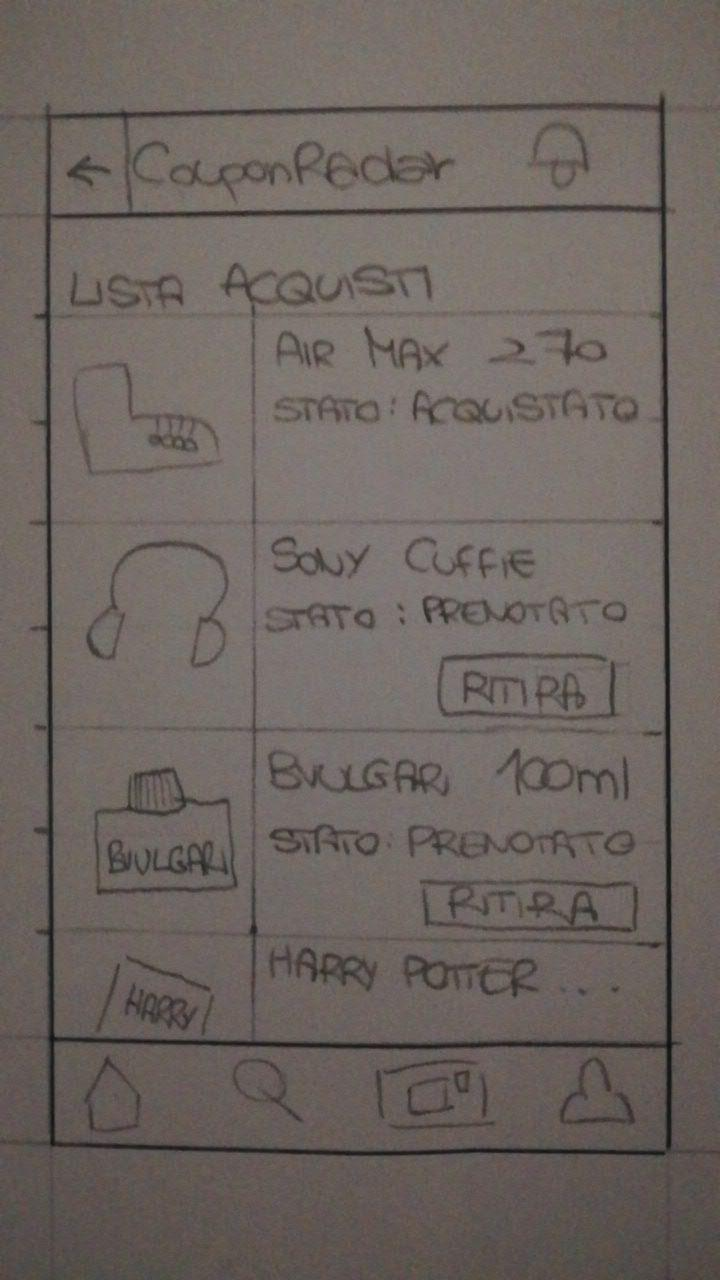 CouponRadar
LISTA ACQUISTI
AIR MAX 270
STATO: ACQUISTATO
SONY CUFFIE
STATO: PRENOTATO
RITIRA
BVULGARI 100ml
STATO: PRENOTATO
BVULGARI
RITIRA
HARRY POTTER...
HARRY